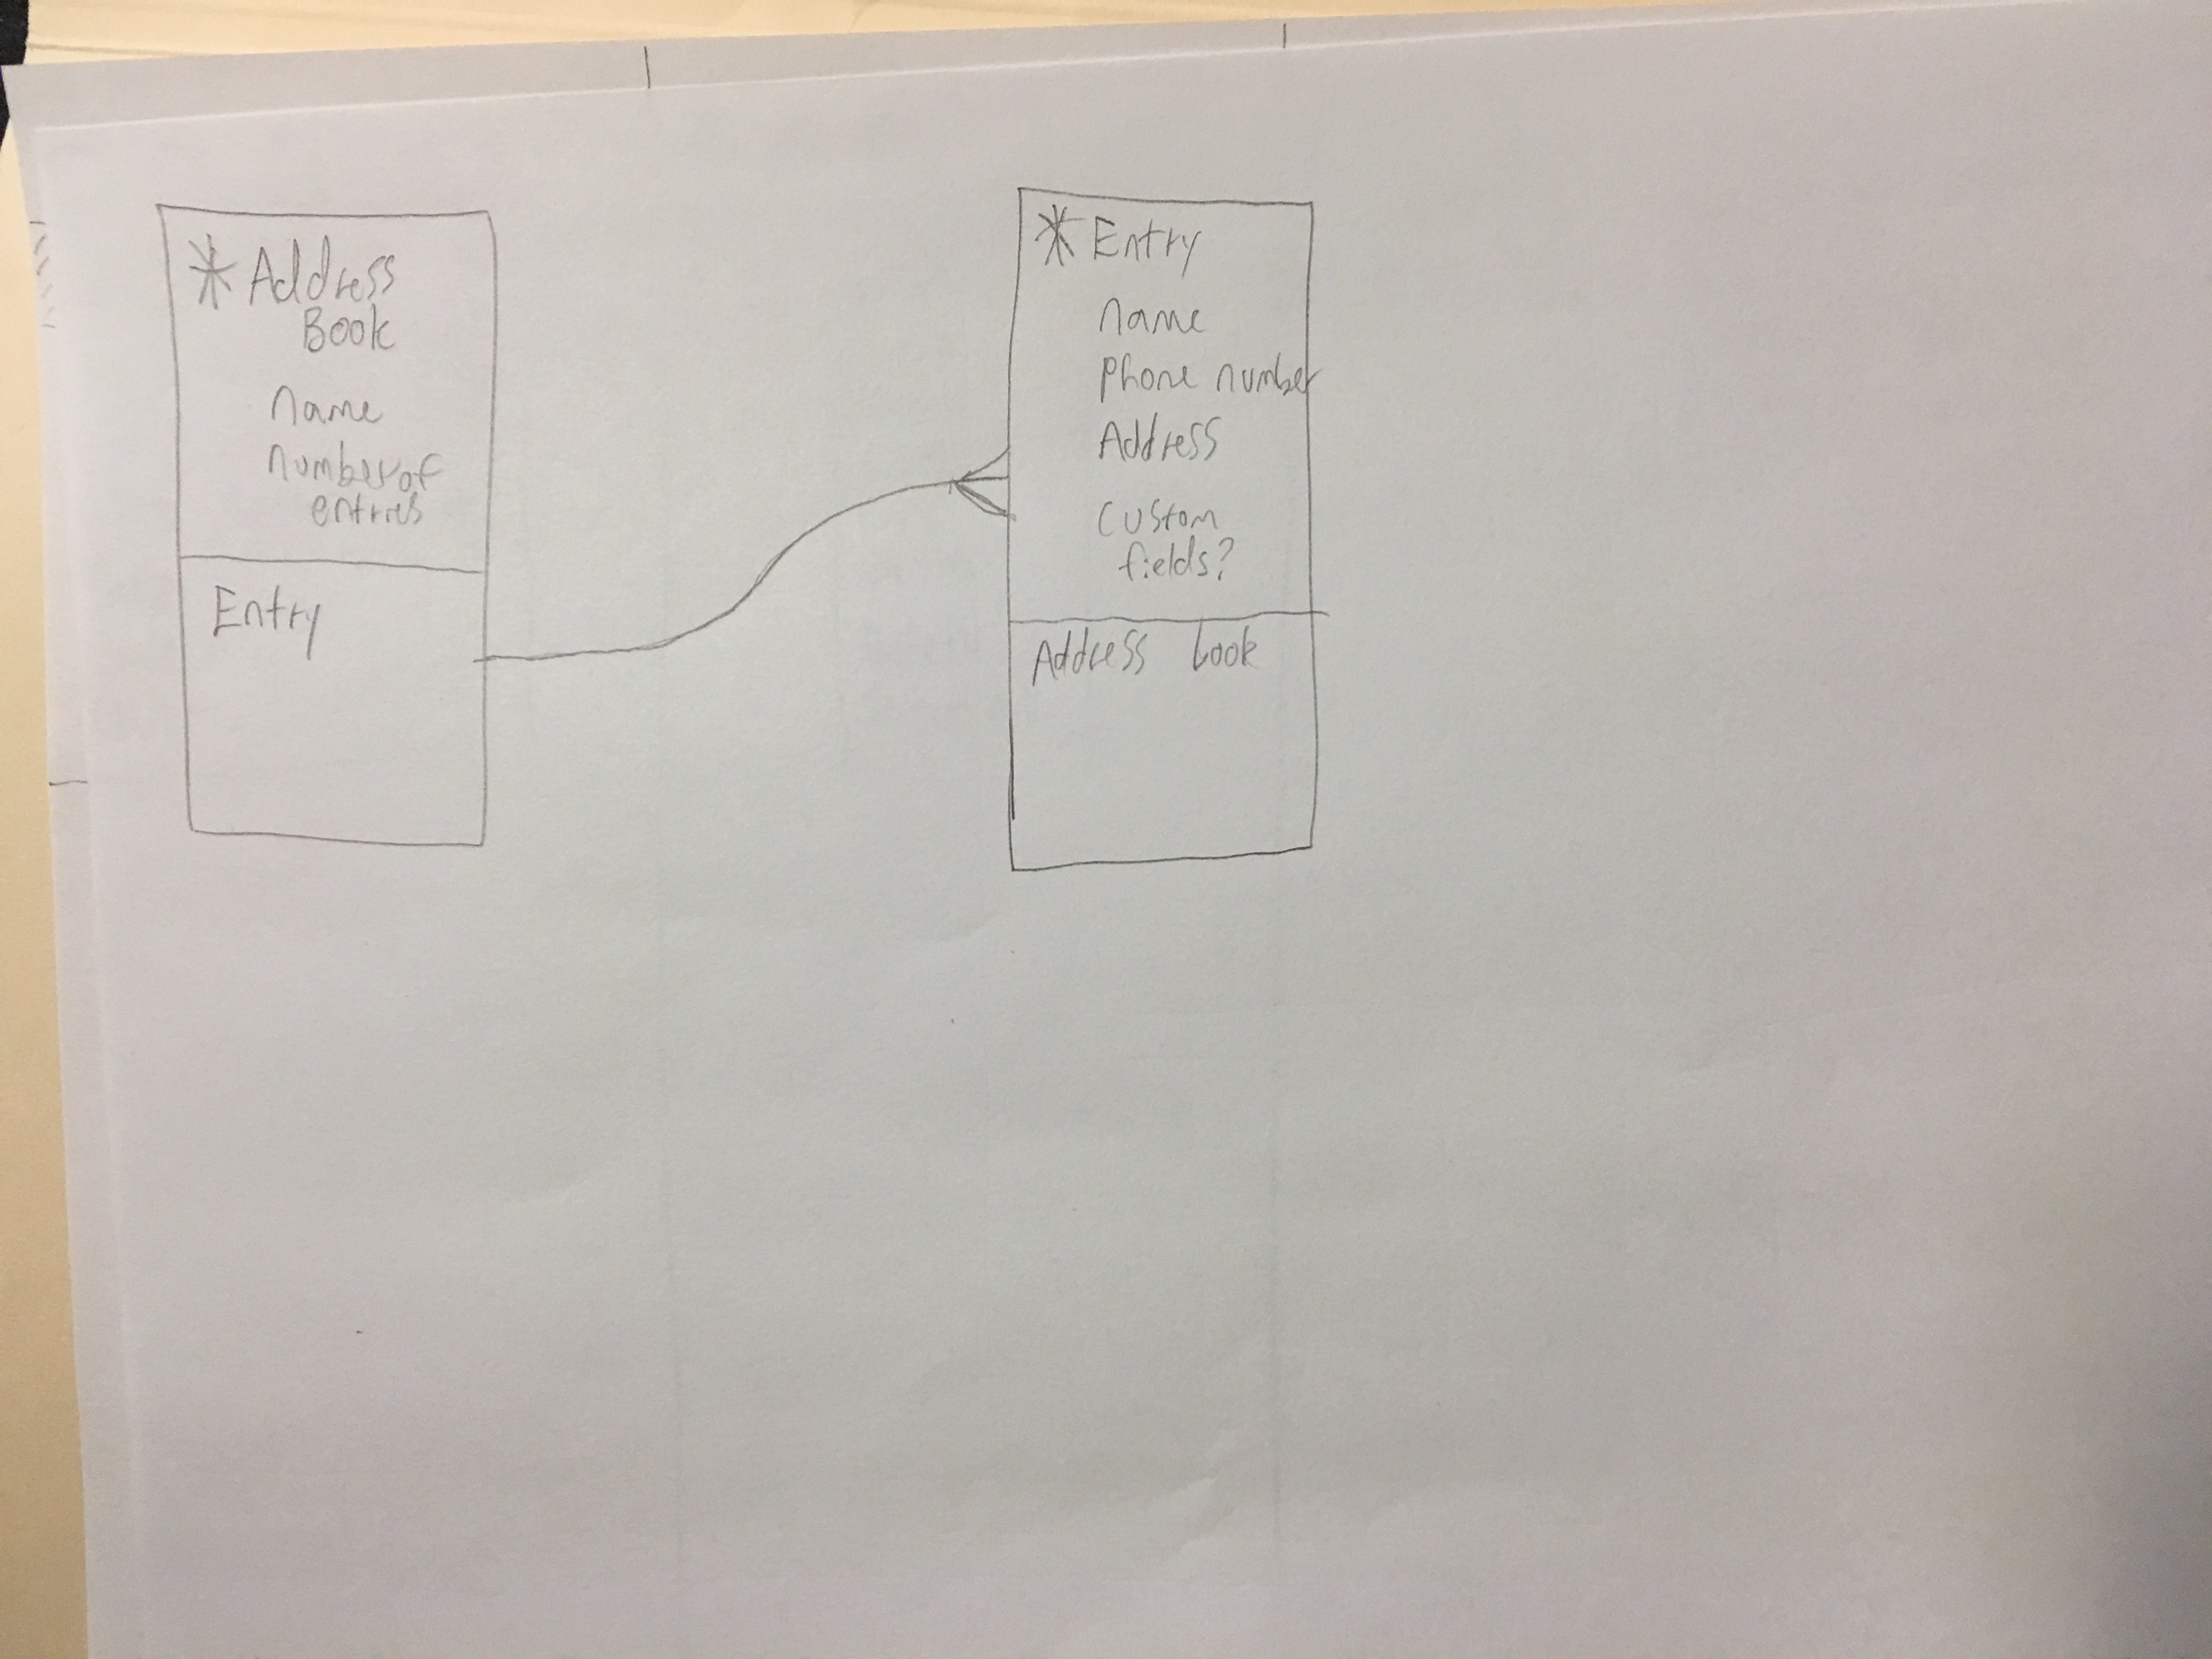 * Address
Book
name
number of
entries
Entry
* Entry
name
phone number
Address
custom
fields?
Address book